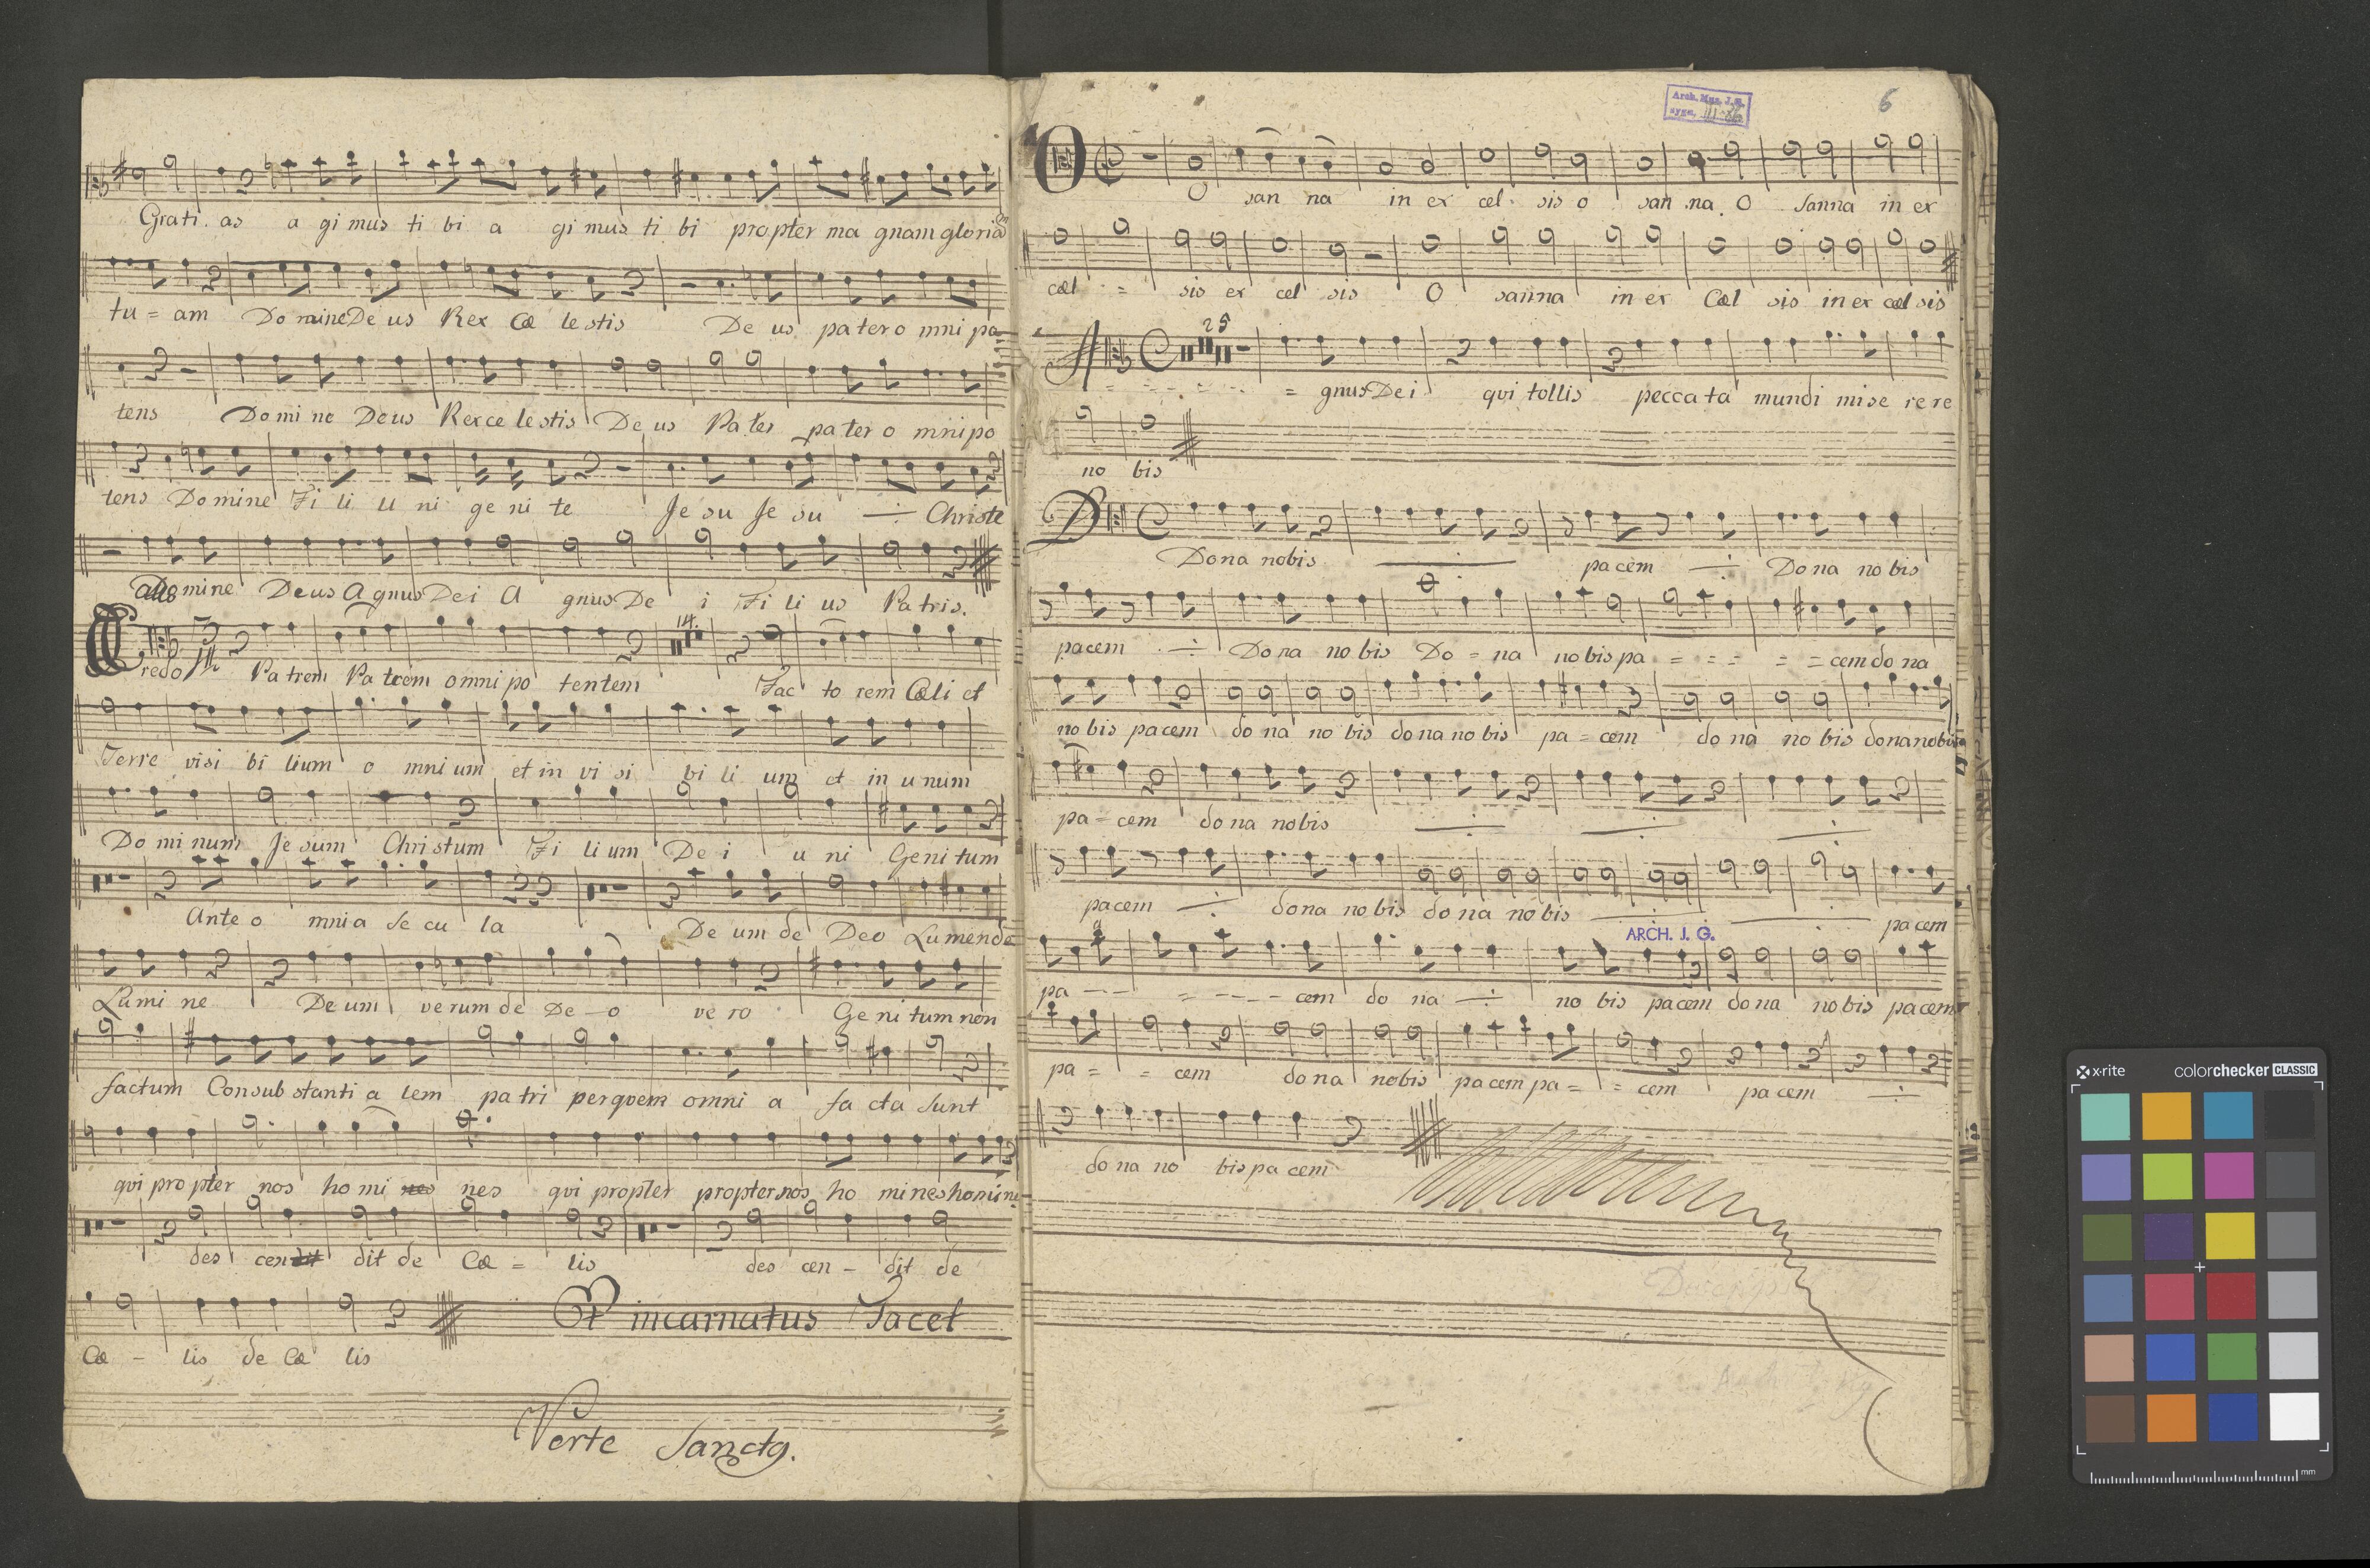 Grati. as a gi mus ti bi a gi mus ti bi propter ma gnam gloriã
tu = am Do mine De us Rex Cæ le stis De us pa ter o mni po
tens Do mi ne Deus Rex ce le stis De us Pa ter pa ter o mni po
tens Do mine Fi li u ni ge ni te Je su Je su Christe
Do mine Deus A gnus Dei A gnus De i Fi li us Pa tris.
14.
Credo Pa trem Pa trem omni po tentem Fac to rem Cæli et
Terre visi bi lium o mni um et in vi si bi li um et in u num
Do mi num Je sum Chri stum Fi li um De i u ni Geni tum
Ante o mni a Se cu la De um de Deo Lumen de
Lumi ne De um ve rum de De - o ve ro Ge ni tum non
factum Con sub stanti a lem pa tri per quem omni a fa cta Sunt
qui pro pter nos ho mi nes nes qui propter propter nos ho mi nes homine
des cen dit dit de Cæ = lis des cen - dit de
Et incarnatus Tacet
Cæ - lis de Cæ lis
Verte Sanctg.
6
Arch. Muz. J. G.
sygn.
O san na in ex cel. sis o san na. O Sanna in ex
cæl = sis ex cel sis O sanna in ex Cæl sis in ex cæl sis
25
A = gnus Dei qui tollis pecca ta mundi mise re re
no bis
D
Dona nobis pa cem Do na no bis
pacem Do na no bis Do = na no bis pa = = = = = cem do na
no bis pa cem do na no bis do na no bis pa = cem do na no bis dona nobis
pa = cem do na nobis
pacem dona no bis do na no bis pa cem
ARCH. J. G.
pa - - - = - - - - cem do na no bis pa cem do na no bis pa cem
pa = = cem do na nobis pa cem pa = = cem pa cem
do na no bis pa cem
x-rite colorchecker CLASSIC
mm